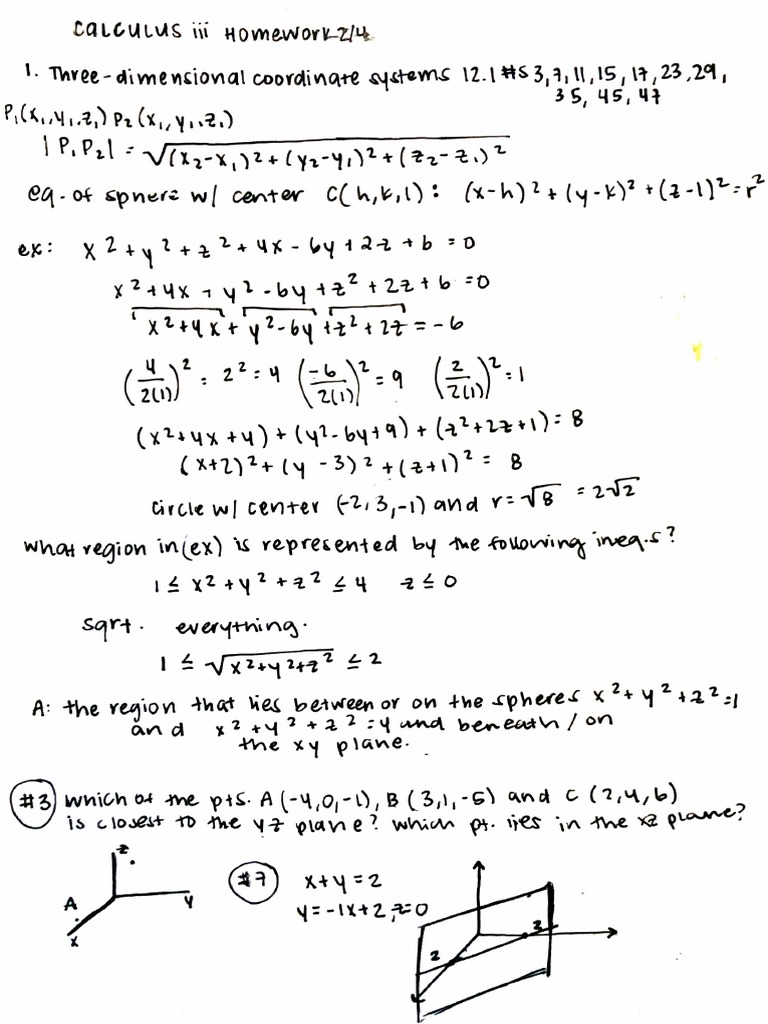 CALCULUS iii HOMEWORK 2/4
1. Three-dimensional coordinate systems 12.1 #s 3,7,11,15,17,23,29,
35,45,47
P₁(x₁,y₁,z₁) P₂(x₁,y₁,z₁)
|P₁P₂| = √(x₂-x₁)²+(y₂-y₁)²+(z₂-z₁)²
eq. of sphere w/ center C(h,k,l): (x-h)²+(y-k)²+(z-l)²=r²
ex: x²+y²+z²+4x-6y+2z+6=0
x²+4x+y²-6y+z²+2z+6=0
x²+4x+y²-6y+z²+2z=-6
(4/2(1))²=2²=4 (-6/2(1))²=9 (2/2(1))²=1
(x²+4x+4)+(y²-6y+9)+(z²+2z+1)=8
(x+2)²+(y-3)²+(z+1)²=8
circle w/ center (-2,3,-1) and r=√8 =2√2
What region in (ex) is represented by the following ineq.s?
1≤x²+y²+z²≤4 z≤0
sqrt. everything.
1≤√x²+y²+z²≤2
A: the region that lies between or on the spheres x²+y²+z²=1
and x²+y²+z²=4 and beneath/on
the xy plane.
#3 Which of the pts. A(-4,0,-1), B(3,1,-5) and C(2,4,6)
is closest to the yz plane? Which pt. lies in the xz plane?
z
A
y
x
#7 x+y=2
y=-1x+2,z=0
2
2